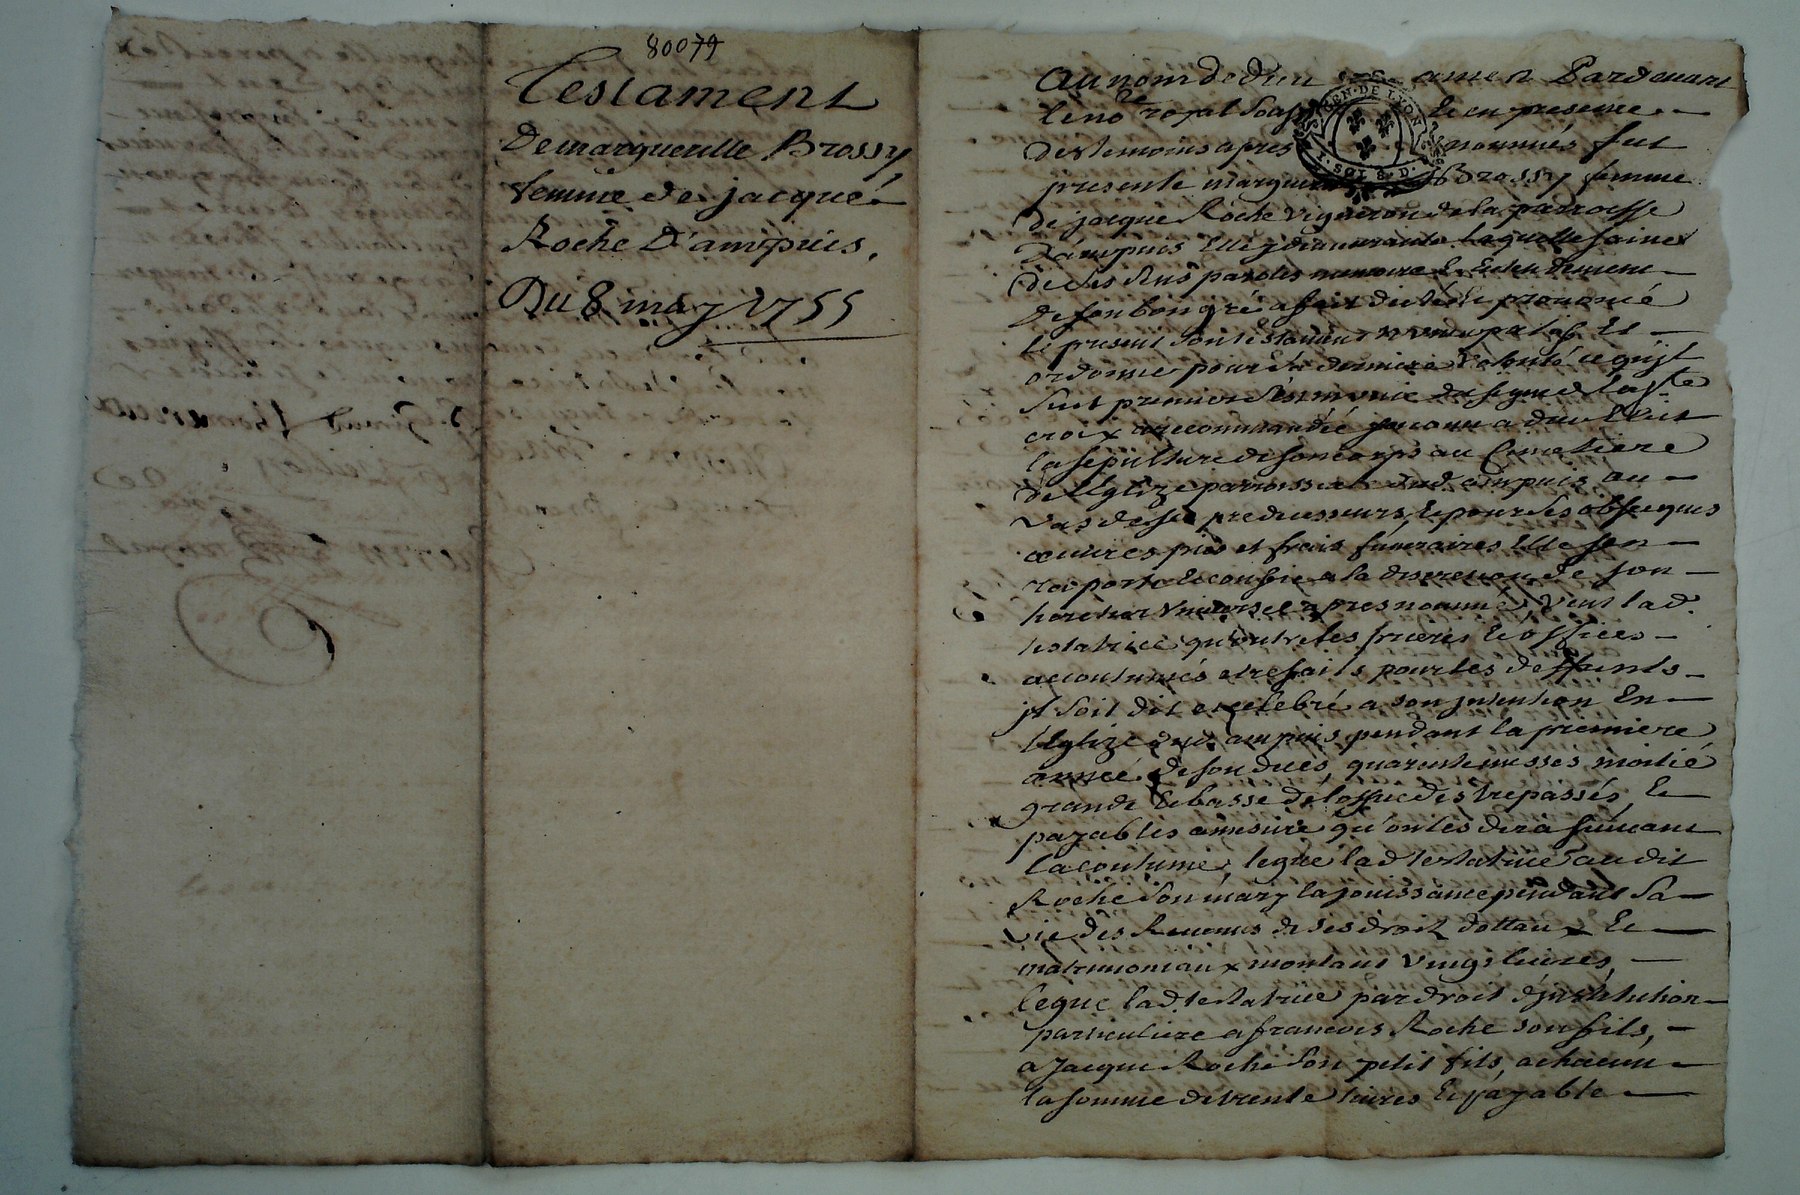 80079
Testament
De marguerille Brossy
femme de jacque
Roche D'ampuis,
Du 8 may 1755
Au nom de dieu amen Pardevant
le no.re royal sousg &en presence
des temoins apres nommés fut
presente margue Brossy femme
de jacque Roche vigneron de la parroisse
D'ampuis Elle y demeurante laquelle saine
de ses sens parolle memoire & Entendement
de son bon gré a fait dicté & prononcé
le present son testament nuncupatif Et
ordonnie pour sa derniere volonté ce qujl
suit premierement munie du signe de la ste
croix a recommandé son ame a dieu Elit
la sepulture de son corps au Cimetiere
de l'Eglize parroissialle dud ampuis au
vas de ses predecesseurs, & pour ses obseques
œuures pies et frais funeraires Elle s'en
raporte & confie a la discretion de son
heretier vniversel apres nommé, Veut lad.
testatrice qu'outre les prieres & offices
accoutumés etre faits pour les deffunts
jl soit dit et celebré a son jntention En
l'Eglize dud ampuis pendant la premiere
année de son deces, quarente messes moitié
grande & basse de l'office des trepassés, &
payables amesure qu'on les dira suiuant
la coutume, legue lad testatrice audit
Roche son mary la jouissance pendant sa
vie des Reuenus de ses droit dottaux &
matrimoniaux montant vingt liures,
legue lad. testatrice par droit d'jnstitution
particuliere a francois Roche son fils,
a Jacque Roche son petit fils, a chacun
la somme de trente liures & payable
GEN·DE LYON
1·SOL 8·D